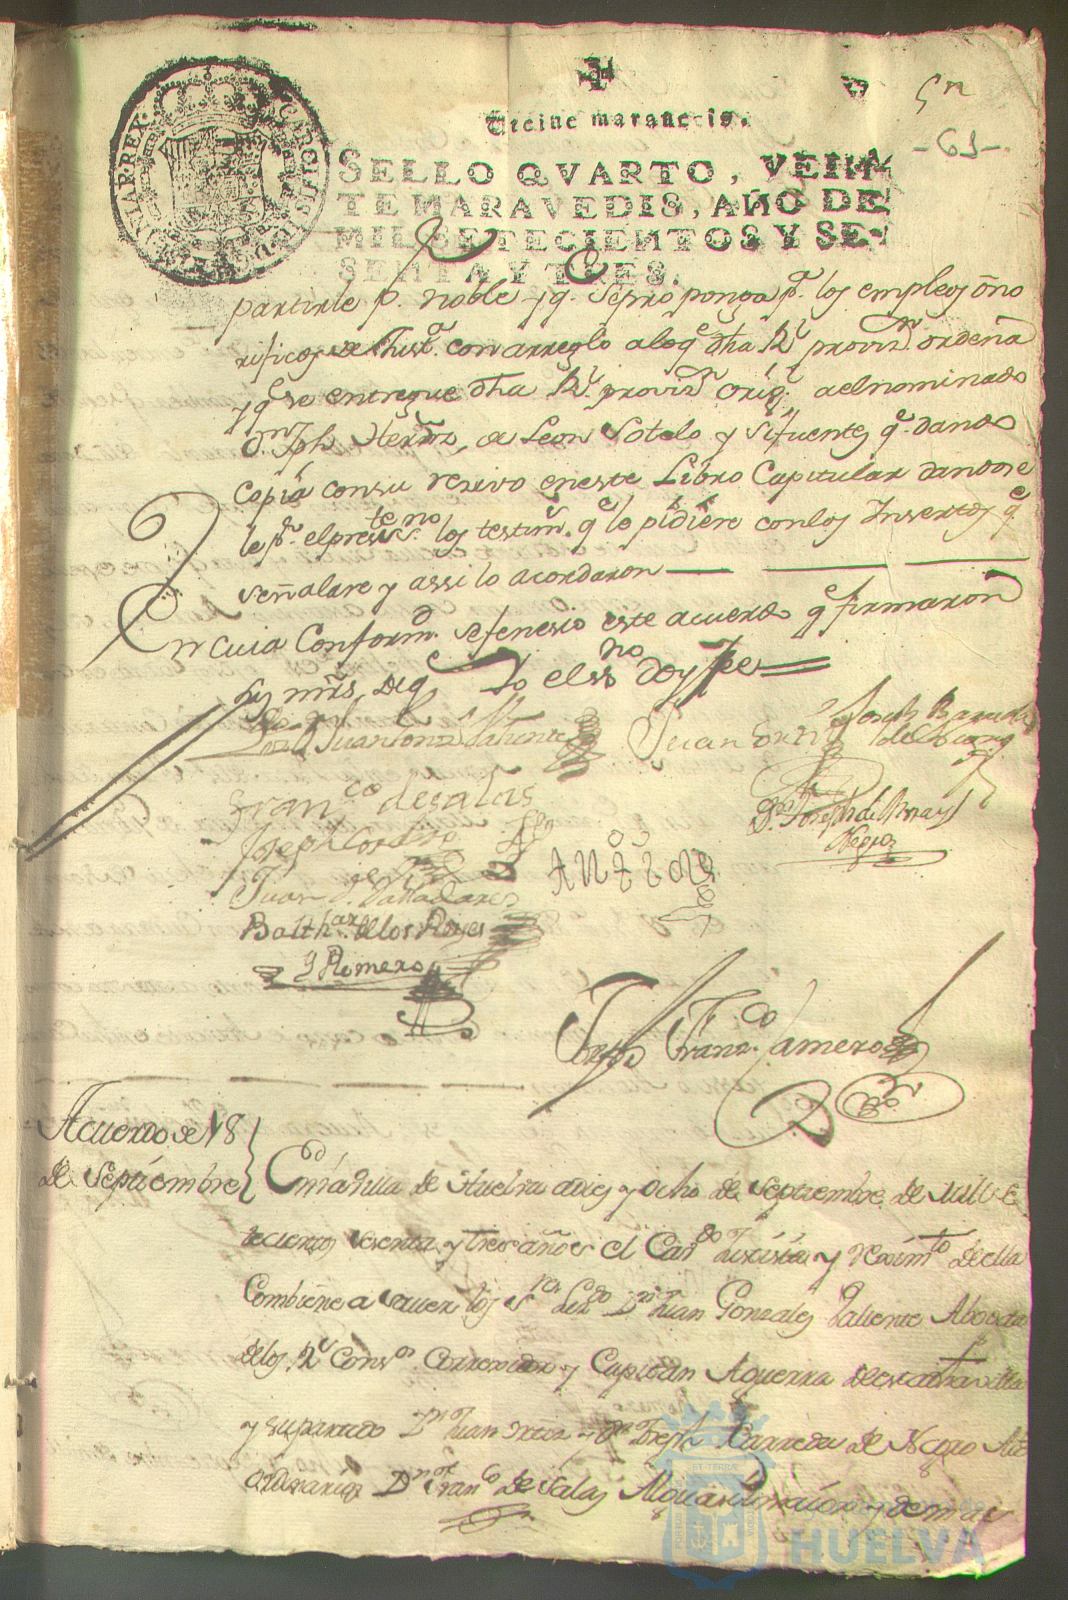 5n
-61-
Veinte maravedis.
SELLO QVARTO, VEIN-
TE MARAVEDIS, AÑO DE
MIL SETECIENTOS Y SE-
SENTA Y TRES.
partirle p. Noble y q. se proponga pa. los empleos ono
rificos de Just.a con arreglo a lo qe. dha Rl. provizn. ordena
y q. se entregue dha Rl. provizn. orig.l a el nominado
Dn. Jph. Herroz, de Leon Sotelo y Sifuentes qe. dando
copia con su resivo en este Libro Capitular dandose
le pr. el preste. ssno. los testims. qe. le pidiere con los Insertos qe.
señalare y assi lo acordaron
En cuia Conformd. se fenesio este acuerdo q firmaron
sus mrds. de q. Yo el ssno. doy fee
Juan Gonz Valiente
Juan Ortiz
Joseph Barreda
Franco. de Salas
Joseph Cordero
Juan Valladares
Balthar. de los Reyes
y Romero
Franco. Camero
Acuerdo de 18
de Septiembre
En la Villa de Huelva a diez y ocho de Septiembre de mill se
tecientos sesenta y tres años el Cavdo. justisia y reximto. de ella
Combiene a saver los Sres. Lizdo. Dn. Juan Gonzales Valiente Abogado
de los Rs. Consos. Correxidor y Capitan Aguerra de esta dha villa
y su partido Dn. Juan Ortiz y Dn. Joseph Barreda de Negro Alcs
ordinarios Dn. Franco. de Salas Alguasil maior y demas
HUELVA